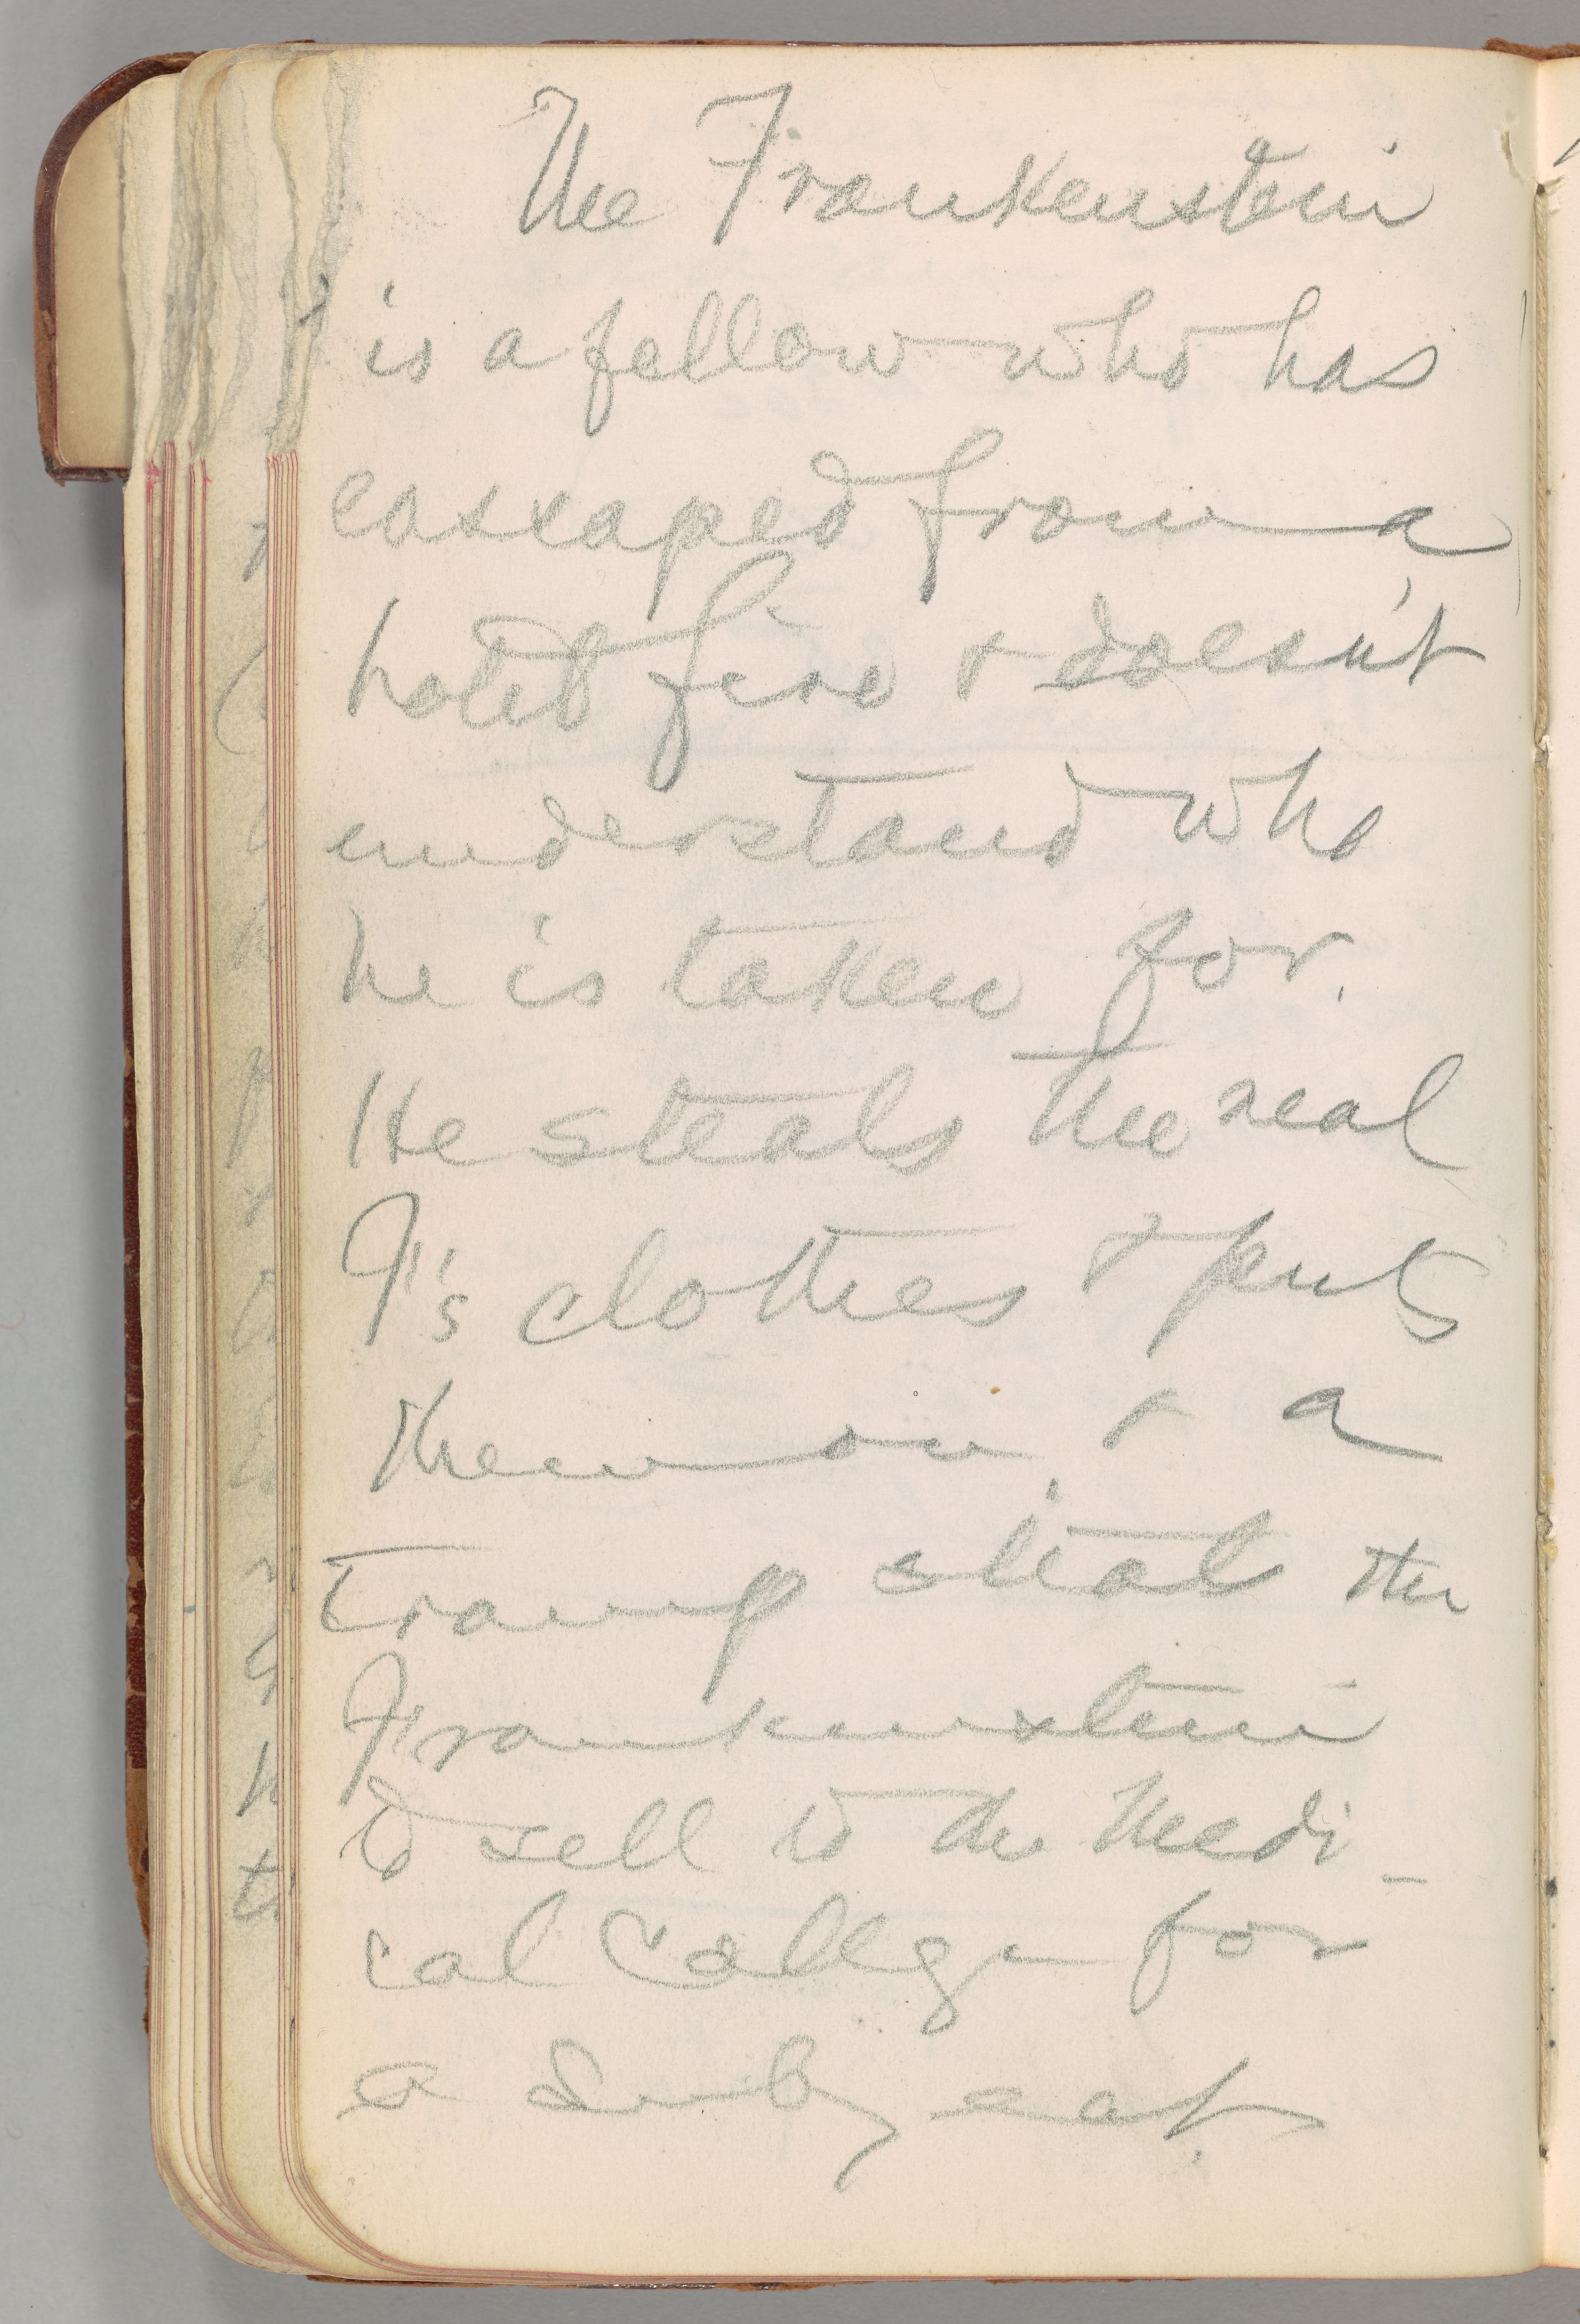 The Frankenstein
is a fellow who has
escaped from a
hotel fire & doesn't
understand who
he is taken for.
He steals the real
F's clothes & puts
them on, & a
tramp steals the
Frankenstein
to sell to the Medi-
cal College for
a